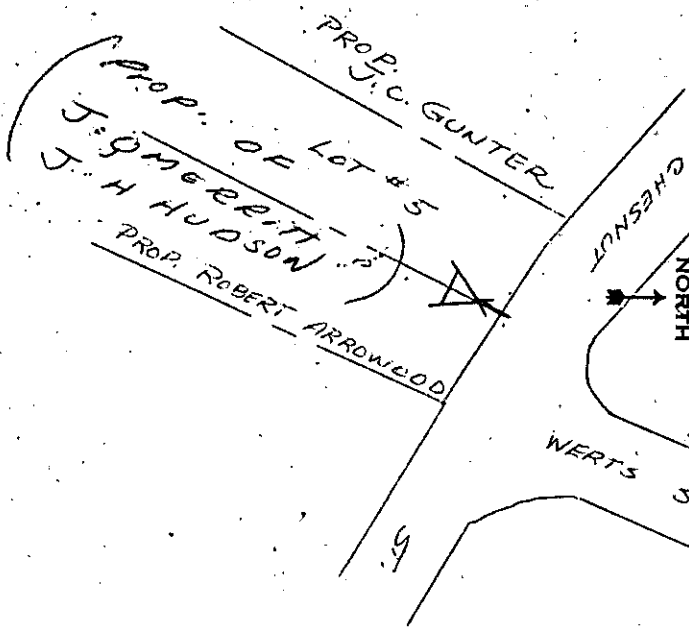 PROP.
J.C. GUNTER
LOT #5
PROP. OF
J. O MERRITT
J. H HUDSON
PROP. ROBERT ARROWOOD
CHESNUT
NORTH
WERTS S
St